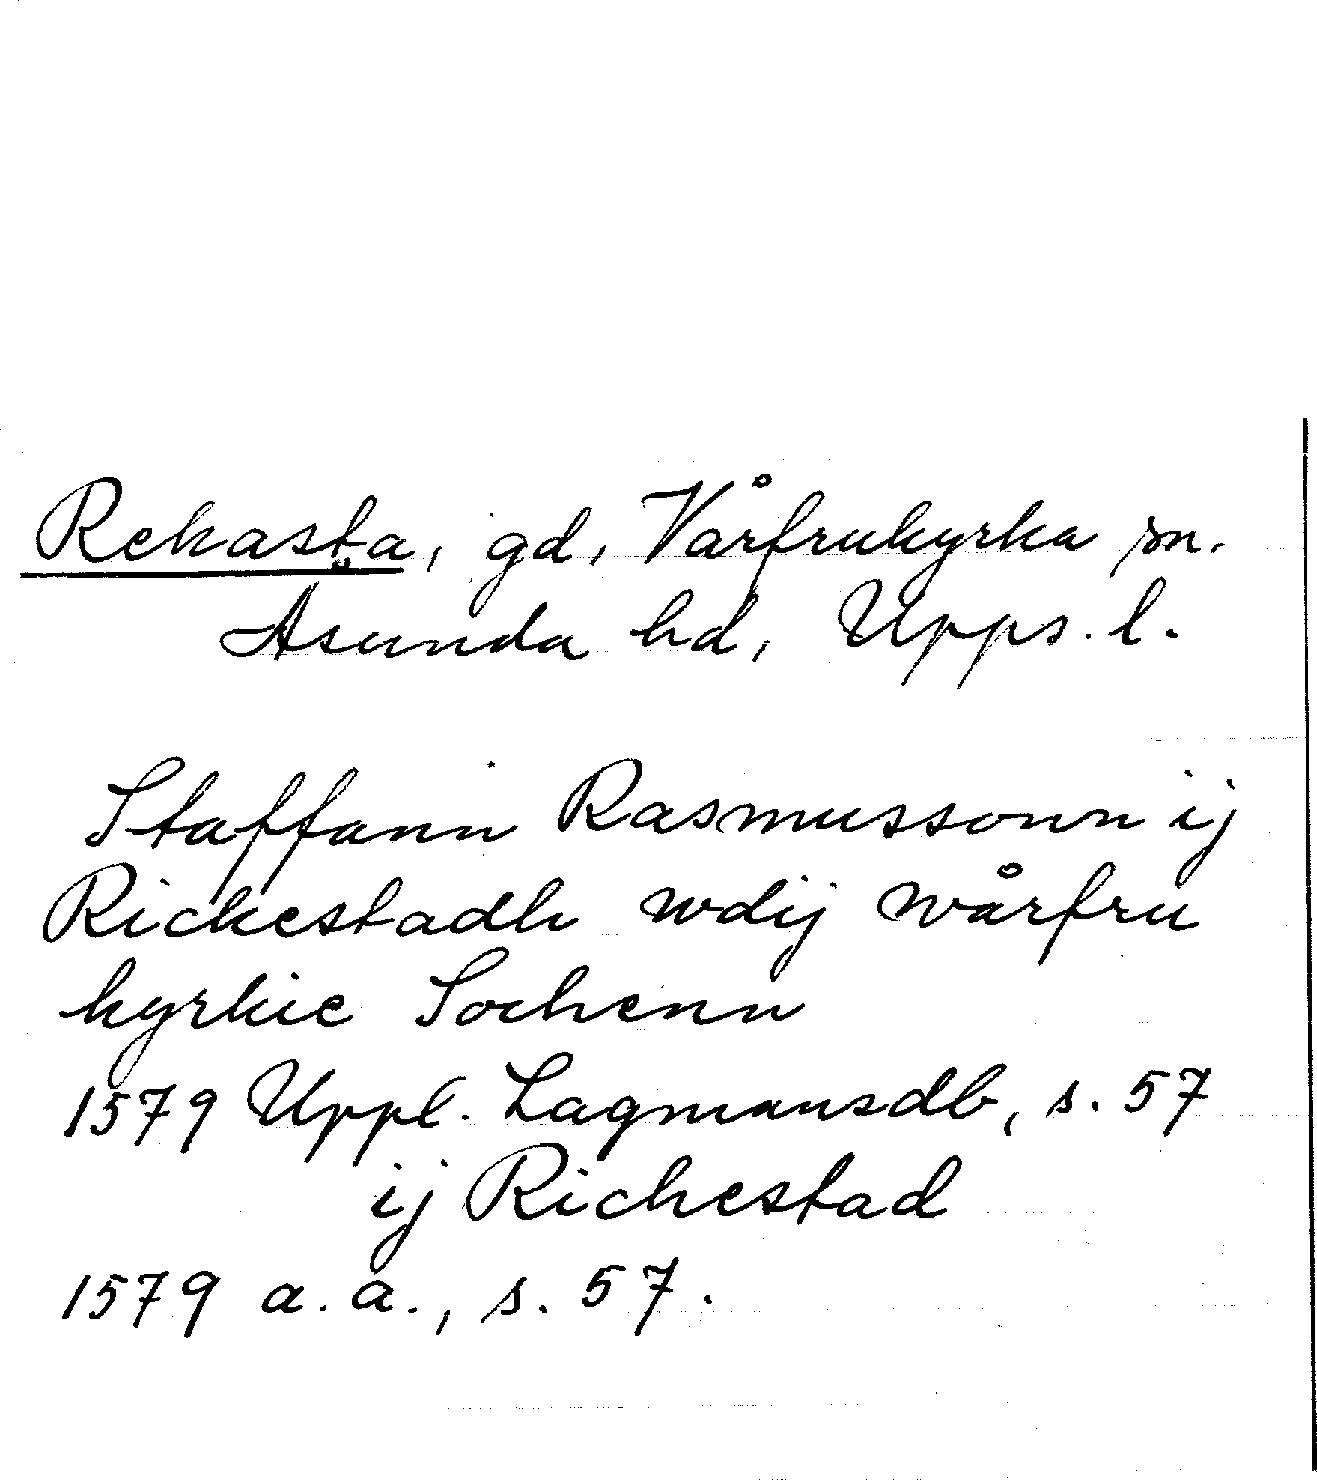 Rekasta, gd, Vårfrukyrka sn.
Asunda hd, Upps. l.
Staffann Rasmussonn ij
Rickestadh wdij wårfru
kyrkie Sochenn
1579 Uppl. Lagmansdb, s. 57
ij Richestad
1579 a. a., s. 57.